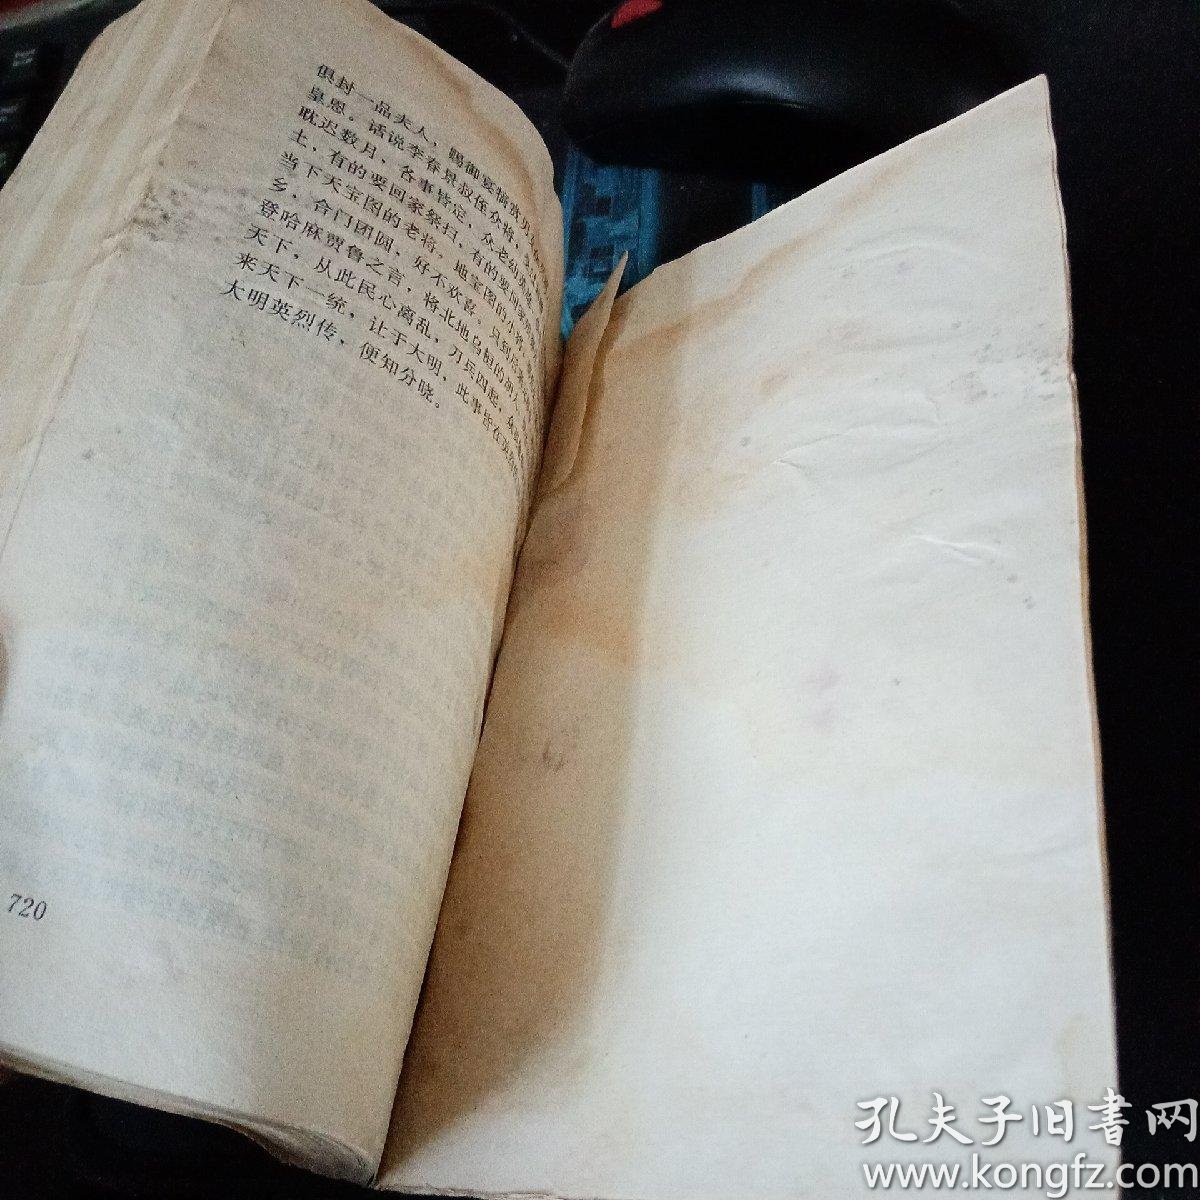 俱封一品夫人，赐御宴犒赏
皇恩。话说李春景叔侄众将，
耽迟数月，各事皆定，众老幼英雄
土，有的要回家祭扫，有的要回家
当下天宝图的老将，地宝图的小将，
乡，合门团圆，好不欢喜。只到后来
登哈麻贾鲁之言，将北地乌桓的胡人
天下，从此民心离乱，刀兵四起，众
来天下一统，让于大明，此事皆在
大明英烈传，便知分晓。
720
孔夫子旧書网
www.kongfz.com